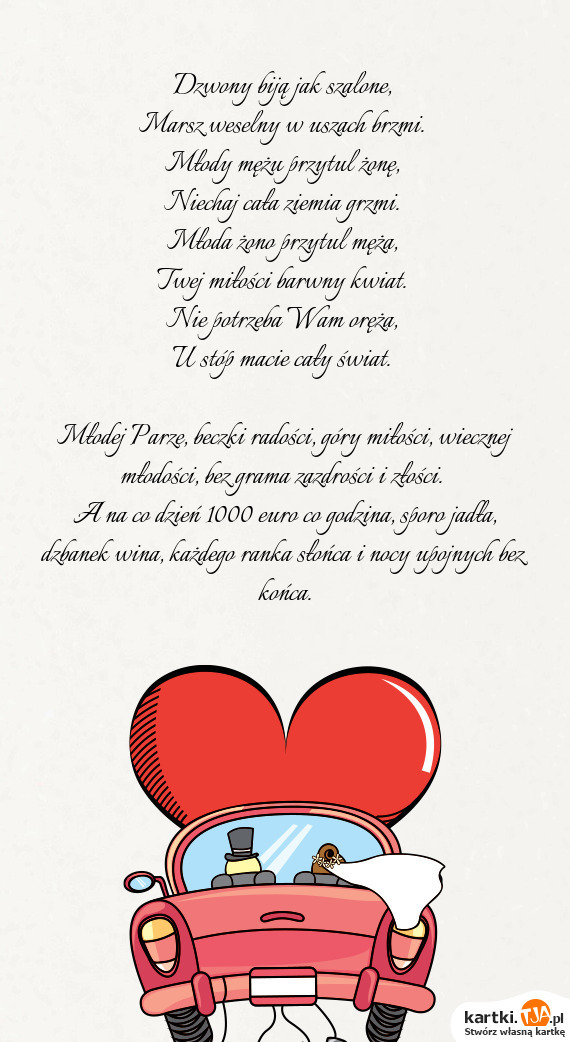 Dzwony biją jak szalone,
Marsz weselny w uszach brzmi.
Młody mężu przytul żonę,
Niechaj cała ziemia grzmi.
Młoda żono przytul męża,
Twej miłości barwny kwiat.
Nie potrzeba Wam oręża,
U stóp macie cały świat.
Młodej Parze, beczki radości, góry miłości, wiecznej
młodości, bez grama zazdrości i złości.
A na co dzień 1000 euro co godzina, sporo jadła,
dzbanek wina, każdego ranka słońca i nocy upojnych bez
końca.
kartki.TJA.pl
Stwórz własną kartkę